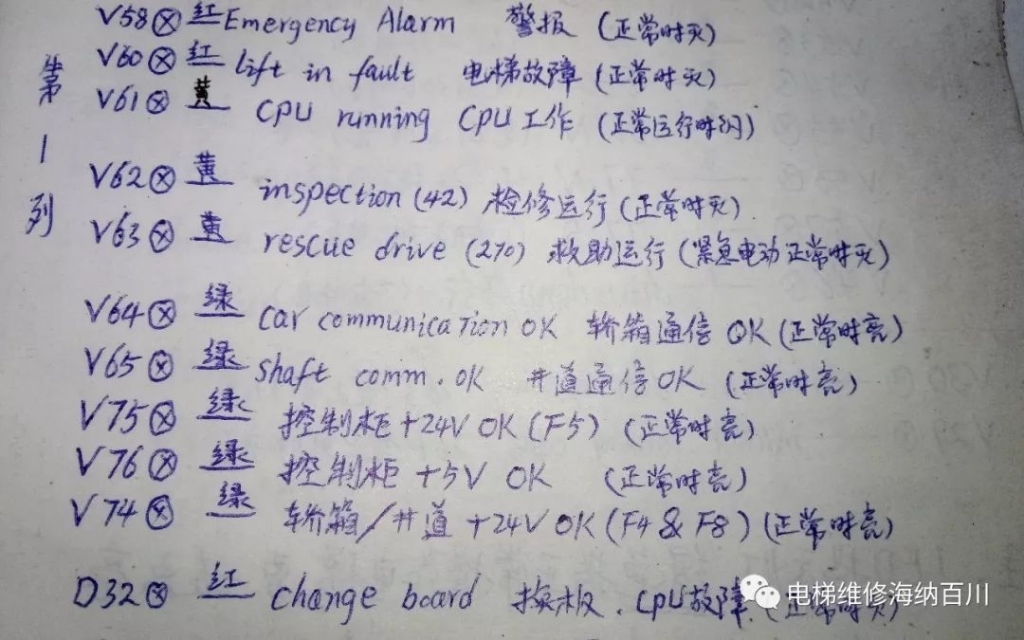 第1列
V58⊗ 红 Emergency Alarm 警报 (正常时灭)
V60⊗ 红 Lift in fault 电梯故障 (正常时灭)
V61⊗ 黄 CPU running CPU工作 (正常运行时闪)
V62⊗ 黄 inspection (42) 检修运行 (正常时灭)
V63⊗ 黄 rescue drive (270) 救助运行 (紧急电动正常时灭)
V64⊗ 绿 car communication OK 轿箱通信 OK (正常时亮)
V65⊗ 绿 shaft comm. OK 井道通信 OK (正常时亮)
V75⊗ 绿 控制柜 +24V OK (F5) (正常时亮)
V76⊗ 绿 控制柜 +5V OK (正常时亮)
V74⊗ 绿 轿箱/井道 +24V OK (F4 & F8) (正常时亮)
D32⊗ 红 change board 换板. CPU故障. (正常时灭)
电梯维修海纳百川